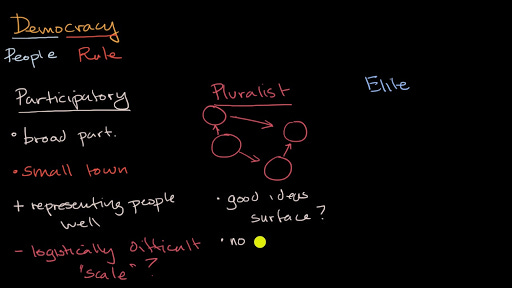 Democracy
People Rule
Participatory
• broad part.
• small town
+ representing people
well
- logistically difficult
"scale" ?
Pluralist
• good ideas
surface ?
• no
Elite